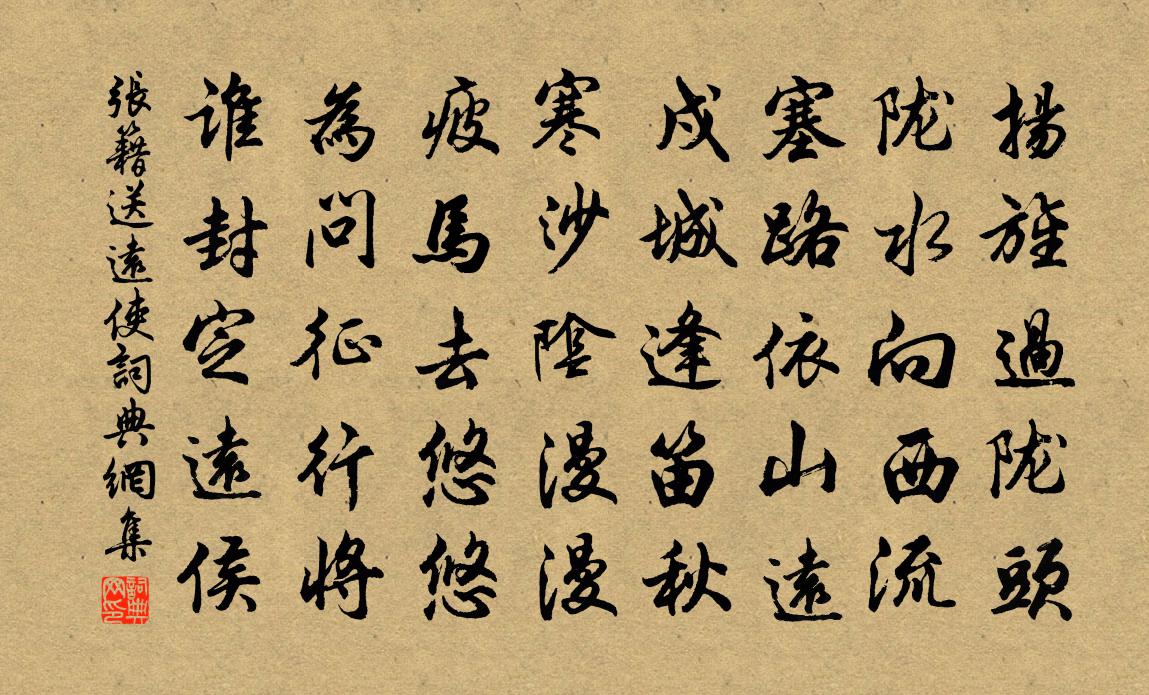 揚旌過陇頭
陇水向西流
塞路依山遠
戍城逢笛秋
寒沙陰漫漫
疲馬去悠悠
為問征行將
谁封定遠侯
張籍送遠使詞典網集
詞典网印